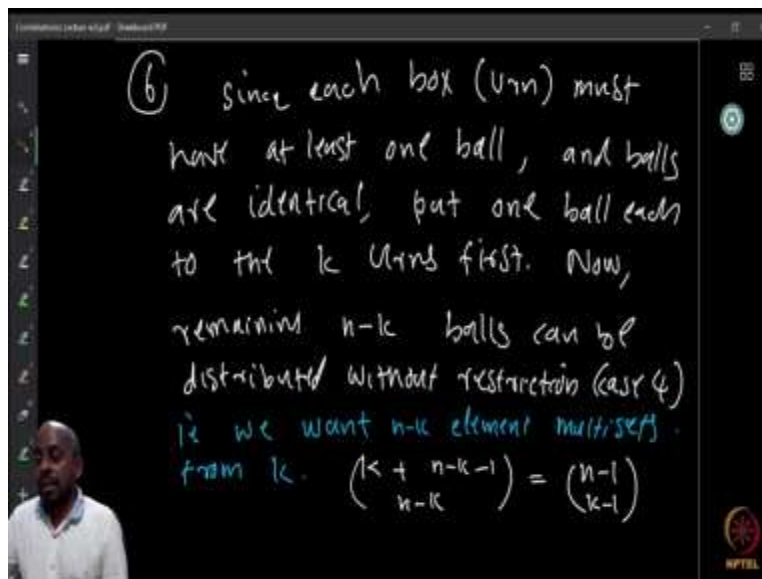 ⑥ since each box (Urn) must
have at least one ball, and balls
are identical, put one ball each
to the k Urns first. Now,
remaining n-k balls can be
distributed without restriction (case 4)
ie we want n-k element multisets
from k. (k + n-k-1 n-k) = (n-1 k-1)
NPTEL